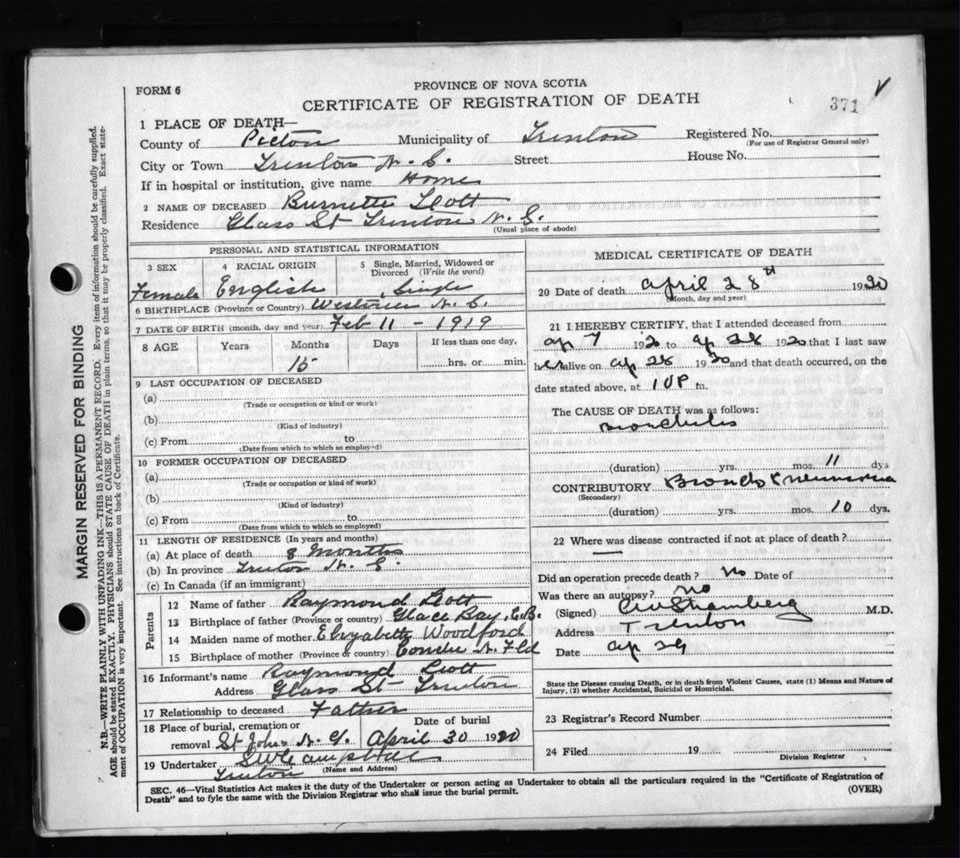 FORM 6
PROVINCE OF NOVA SCOTIA
CERTIFICATE OF REGISTRATION OF DEATH
371
1 PLACE OF DEATH—
County of Pictou Municipality of Trenton Registered No.
(For use of Registrar General only)
City or Town Trenton N. S. Street House No.
If in hospital or institution, give name Home
2 NAME OF DECEASED Burnetta Scott
Residence Glass St Trenton N. S.
(Usual place of abode)
PERSONAL AND STATISTICAL INFORMATION
3 SEX Female
4 RACIAL ORIGIN English
5 Single, Married, Widowed or Divorced (Write the word) Single
6 BIRTHPLACE (Province or Country) Westville N. S.
7 DATE OF BIRTH (month, day and year) Feb 11 - 1919
8 AGE Years Months Days If less than one day,
15 hrs. or min.
9 LAST OCCUPATION OF DECEASED
(a)
(Trade or occupation or kind or work)
(b)
(Kind of industry)
(c) From to
(Date from which to which so employed)
10 FORMER OCCUPATION OF DECEASED
(a)
(Trade or occupation or kind of work)
(b)
(Kind of industry)
(c) From to
(Date from which to which so employed)
11 LENGTH OF RESIDENCE (In years and months)
(a) At place of death 8 Months
(b) In province Trenton N. S.
(c) In Canada (if an immigrant)
Parents
12 Name of father Raymond Scott
13 Birthplace of father (Province or country) Glace Bay, C.B.
14 Maiden name of mother Elizabeth Woodford
15 Birthplace of mother (Province or country) N. Fld
16 Informant's name Raymond Scott
Address Glass St Trenton
17 Relationship to deceased Father
18 Place of burial, cremation or removal St Johns Date of burial April 30 1920
19 Undertaker Campbell
Trenton (Name and Address)
MEDICAL CERTIFICATE OF DEATH
20 Date of death April 28th 1920
(Month, day and year)
21 I HEREBY CERTIFY, that I attended deceased from
ap 7 1920 to ap 28 1920 that I last saw
her alive on ap 28 1920 and that death occurred, on the
date stated above, at 10 P m.
The CAUSE OF DEATH was as follows:
Bronchitis
(duration) yrs. mos. 11 dys
CONTRIBUTORY Broncho Pneumonia
(Secondary)
(duration) yrs. mos. 10 dys.
22 Where was disease contracted if not at place of death?
Did an operation precede death? No Date of
Was there an autopsy? no
(Signed) Stramberg M.D.
Address Trenton
Date ap 29
State the Disease causing Death, or in death from Violent Causes, state (1) Means and Nature of
Injury, (2) whether Accidental, Suicidal or Homicidal.
23 Registrar's Record Number
24 Filed 19
Division Registrar
SEC. 46—Vital Statistics Act makes it the duty of the Undertaker or person acting as Undertaker to obtain all the particulars required in the "Certificate of Registration of
Death" and to fyle the same with the Division Registrar who shall issue the burial permit.
(OVER)
MARGIN RESERVED FOR BINDING
N.B.—WRITE PLAINLY WITH UNFADING INK—THIS IS A PERMANENT RECORD. Every item of information should be carefully supplied.
AGE should be stated EXACTLY. PHYSICIANS should STATE CAUSE OF DEATH in plain terms, so that it may be properly classified. Exact state-
ment of OCCUPATION is very important. See instructions on back of Certificate.